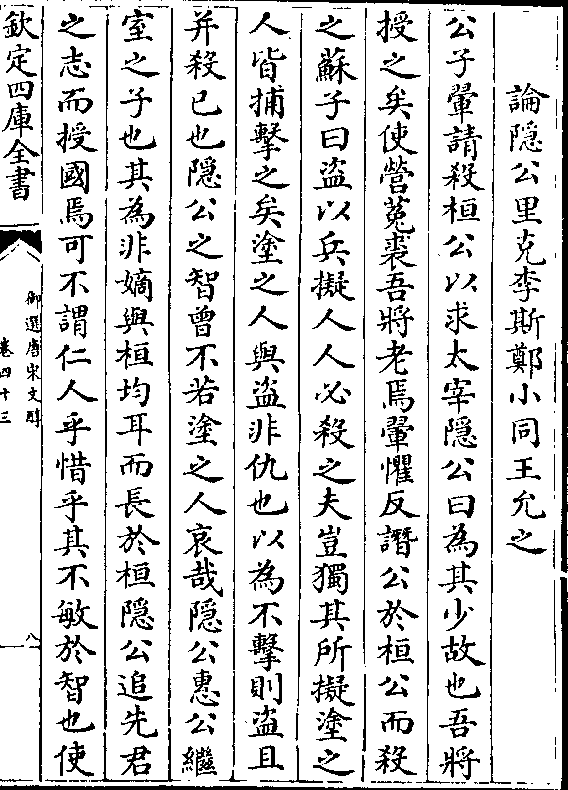 論隱公里克李斯鄭小同王允之
公子翬請殺桓公以求太宰隱公曰為其少故也吾將
授之矣使營菟裘吾將老焉翬懼反譖公於桓公而殺
之蘇子曰盜以兵擬人人必殺之夫豈獨其所擬塗之
人皆捕擊之矣塗之人與盜非仇也以為不擊則盜且
并殺已也隱公之智曾不若塗之人哀哉隱公惠公繼
室之子也其為非嫡與桓均耳而長於桓隱公追先君
之志而授國焉可不謂仁人乎惜乎其不敏於智也使
欽定四庫全書
御選唐宋文醇
卷四十三
八